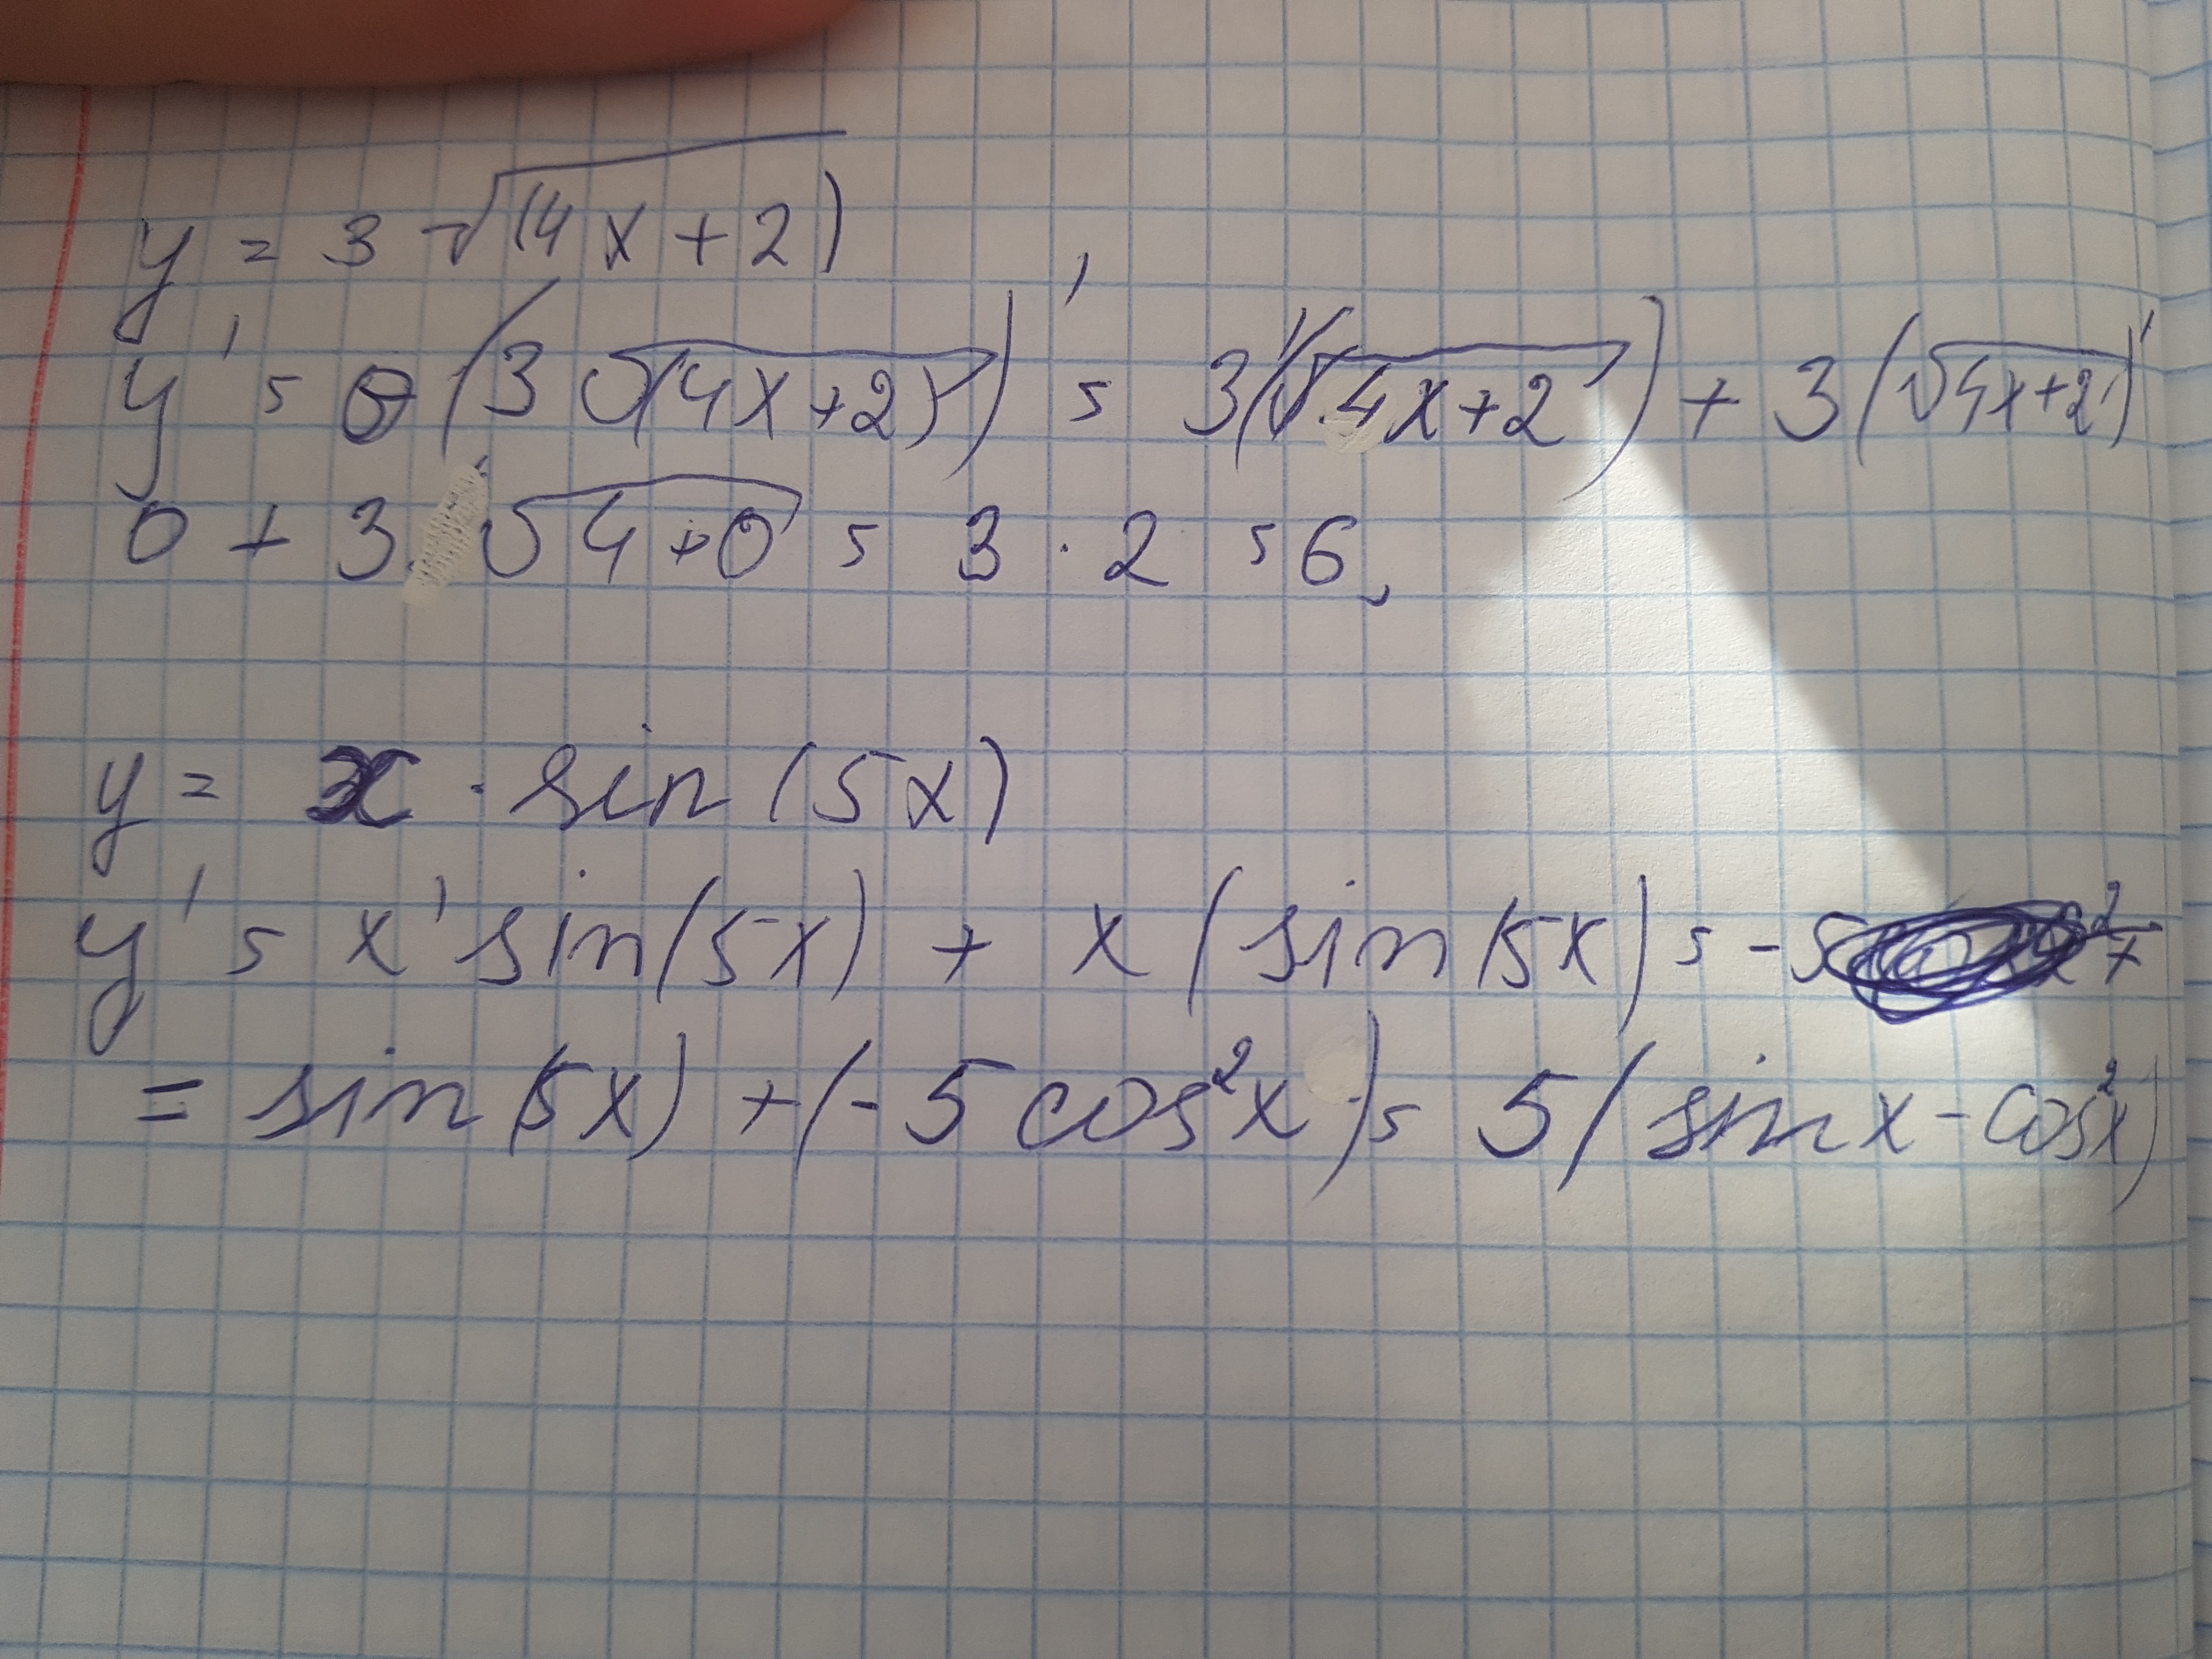 y = 3 √(4x+2)
y' = (3 √(4x+2))' = 3'(√4x+2) + 3(√4x+2)'
0 + 3·√4+0 = 3·2 = 6,
y = x · sin(5x)
y' = x' sin(5x) + x(sin(5x) = -5
= sin(5x) + (-5cos²x) = 5(sin x - cos²x)